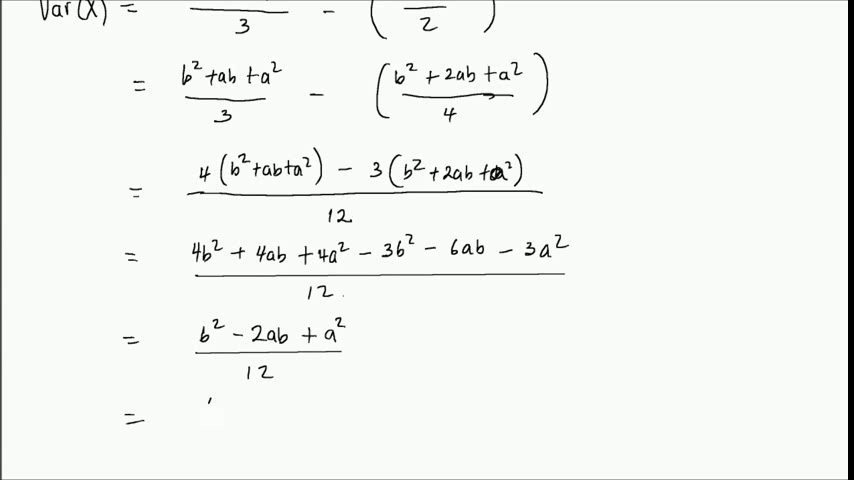 Var(X) = ――― / 3 - ( ――― / 2 )
= (b² + ab + a²) / 3 - ( (b² + 2ab + a²) / 4 )
= (4(b² + ab + a²) - 3(b² + 2ab + a²)) / 12
= (4b² + 4ab + 4a² - 3b² - 6ab - 3a²) / 12
= (b² - 2ab + a²) / 12
=